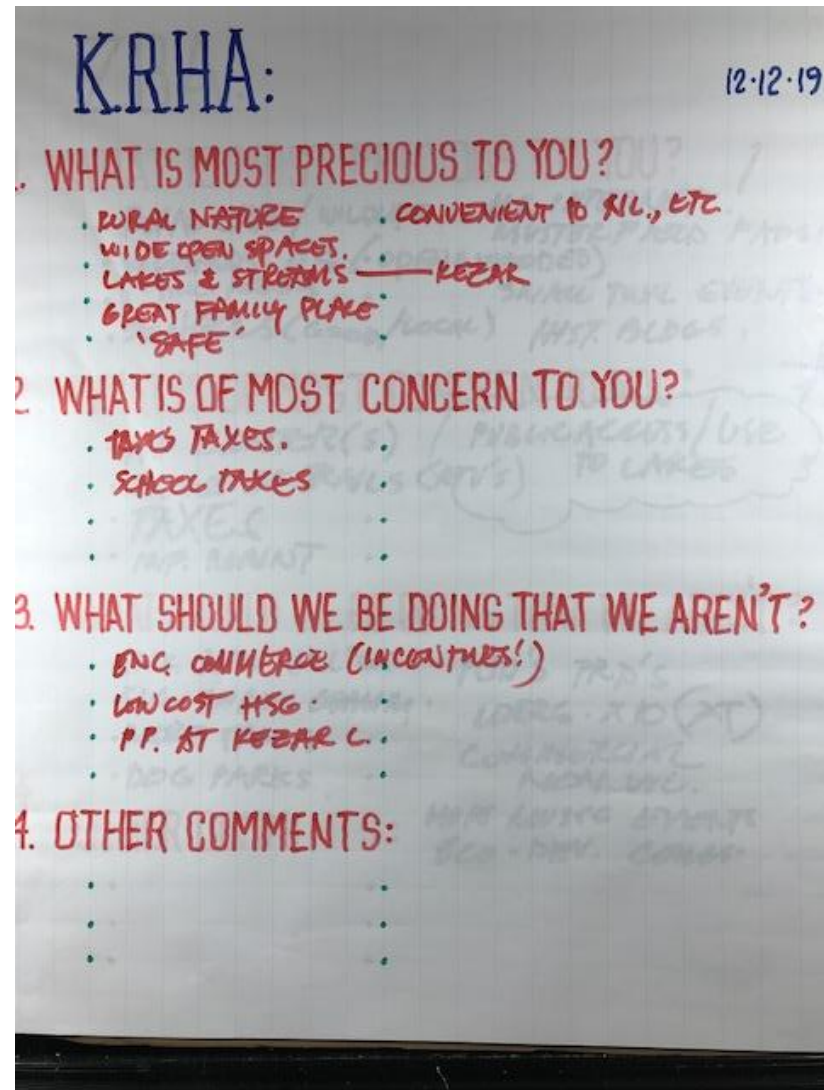 KRHA:
12·12·19
. WHAT IS MOST PRECIOUS TO YOU?
· RURAL NATURE · CONVENIENT TO
· WIDE OPEN SPACES.
· LAKES & STREAMS — KEZAR
· GREAT FAMILY PLACE
· 'SAFE'
2 WHAT IS OF MOST CONCERN TO YOU?
· TAXES TAXES.
· SCHOOL TAXES
3. WHAT SHOULD WE BE DOING THAT WE AREN'T?
· ENC. COMMERCE (INCENTIVES!)
· LOW COST HSG.
· P.P. AT KEZAR L.
4. OTHER COMMENTS: